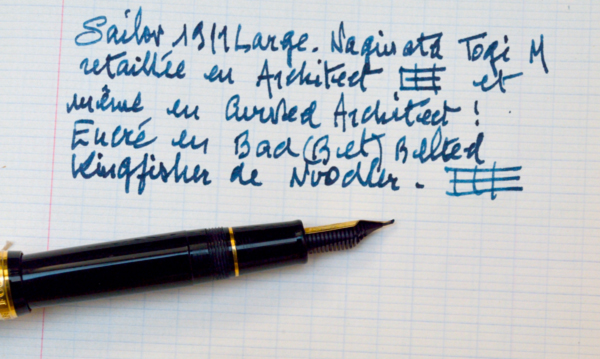 Sailor 1911 Large. Naginata Togi M
retaillée en Architect et
même en Curved Architect !
Encré en Bad (Bet) Belted
Kingfisher de Noodler.